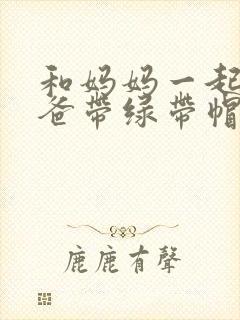 和妈妈一起
爸带绿带帽
鹿鹿有聲